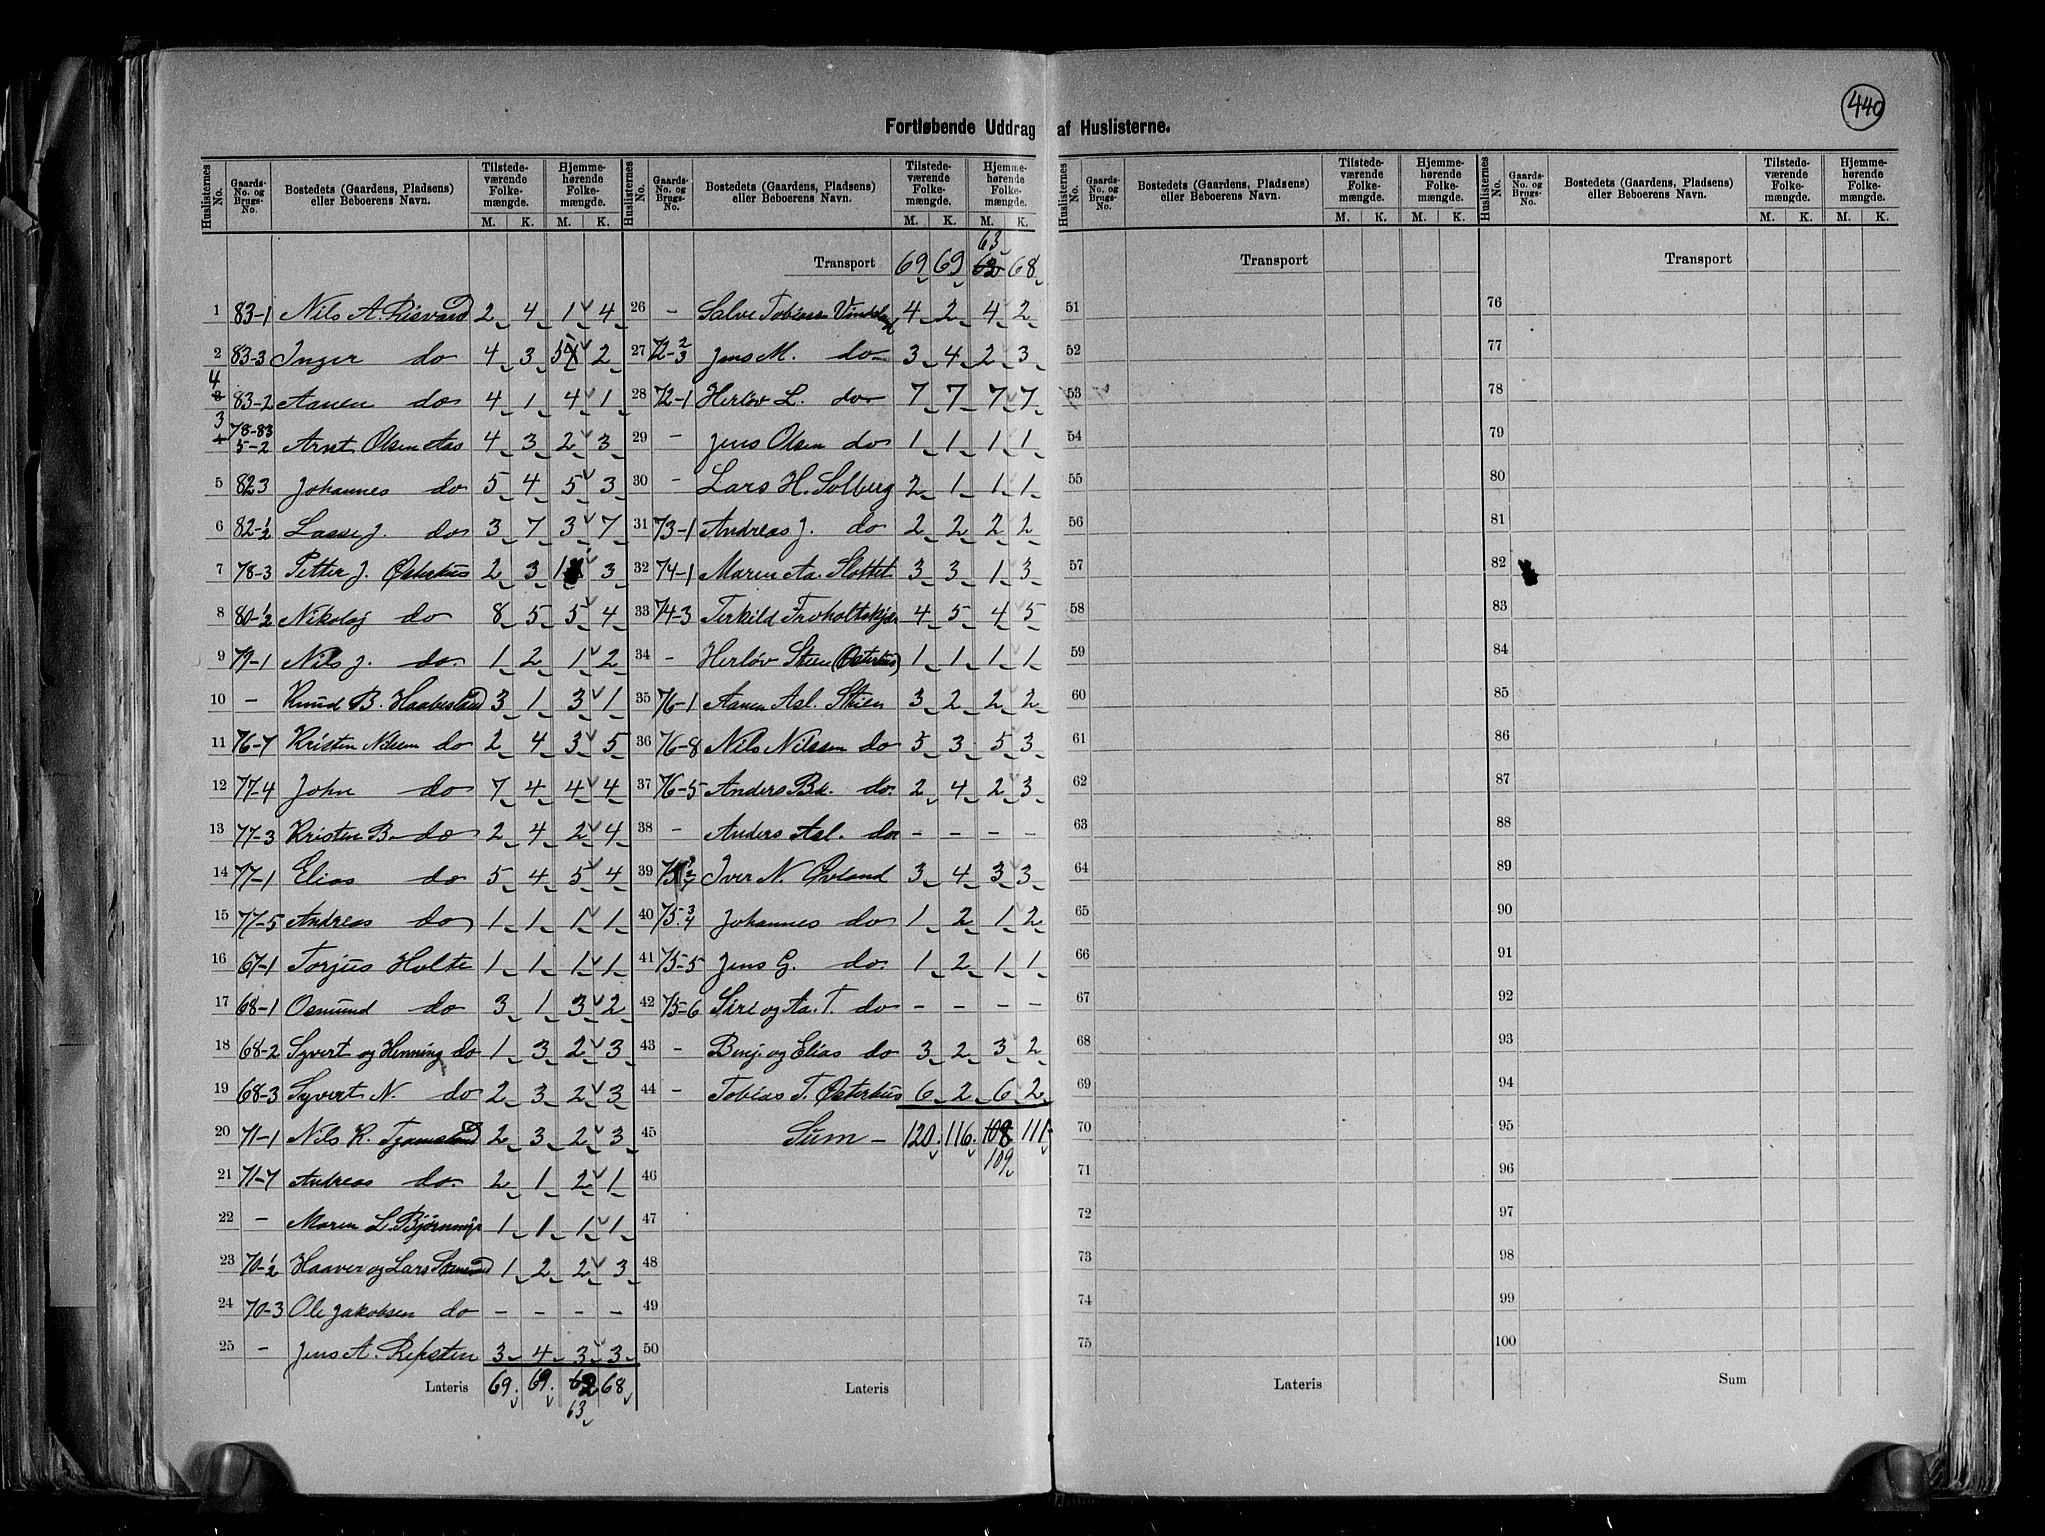 440
Fortløbende Uddrag af Huslisterne.
Huslisternes No. | Gaards-No. og Brugs-No. | Bostedets (Gaardens, Pladsens) eller Beboerens Navn. | Tilstedeværende Folkemængde. M. K. | Hjemmehørende Folkemængde. M. K.
1 83-1 Nils A. Risvand 2 4 1 4
2 83-3 Inger do 4 3 5 2
4 83-2 Aanen do 4 1 4 1
3 78-83 5-2 Arnt Olsen Aas 4 3 2 3
5 82 3 Johannes do 5 4 5 3
6 82-1/2 Lasse J. do 3 7 3 7
7 78-3 Petter J. Østerhus 2 3 1 3
8 80-1/2 Nikolaj do 8 5 5 4
9 79-1 Nils J. do. 1 2 1 2
10 - Knud B. Haabesland 3 1 3 1
11 76-7 Kristen Nilsen do 2 4 3 5
12 77-4 John do 7 4 4 4
13 77-3 Kristen B. do 2 4 2 4
14 77-1 Elias do 5 4 5 4
15 77-5 Andreas do 1 1 1 1
16 67-1 Torjus Holte 1 1 1 1
17 68-1 Osmund do 3 1 3 2
18 68-2 Syvert og Henning do 1 3 2 3
19 68-3 Syvert N. do 2 3 2 3
20 71-1 Nils K. Tjomsland 2 3 2 3
21 71-7 Andreas do. 2 1 2 1
22 - Maren L. Bjørnmyr 1 1 1 1
23 70-1/2 Haaver og Lars 1 2 2 3
24 70-3 Ole Jakobsen do - - - -
25 - Jens A. Repsten 3 4 3 3
Lateris 69 69 62 68
63
Huslisternes No. | Gaards-No. og Brugs-No. | Bostedets (Gaardens, Pladsens) eller Beboerens Navn. | Tilstedeværende Folkemængde. M. K. | Hjemmehørende Folkemængde. M. K.
63
Transport 69 69 62 68
26 - Salve Tobias 4 2 4 2
27 72-2/3 Jens M. do 3 4 2 3
28 72-1 Herløv L. do 7 7 7 7
29 - Jens Olsen do 1 1 1 1
30 - Lars H. Solberg 2 1 1 1
31 73-1 Andreas J. do 2 2 2 2
32 74-1 Maren Aa. Slottet 3 3 1 3
33 74-3 Terkild Froholtskjær 4 5 4 5
34 - Herløv Skien (Østerhus) 1 1 1 1
35 76-1 Aanen Asl. Skien 3 2 2 2
36 76-8 Nils Nilssen do 5 3 5 3
37 76-5 Anders Be. do. 2 4 2 3
38 - Anders Asl. do - - - -
39 Iver N. Øvland 3 4 3 3
40 75-3/4 Johannes do 1 2 1 2
41 75-5 Jens G. do. 1 2 1 1
42 75-6 Siri og Aa. T. do - - - -
43 - Benj. og Elias do 3 2 3 2
44 - Tobias T. Østerhus 6 2 6 2
45 Sum - 120 116 108 111
109
46
47
48
49
50
Lateris
Huslisternes No. | Gaards-No. og Brugs-No. | Bostedets (Gaardens, Pladsens) eller Beboerens Navn. | Tilstedeværende Folkemængde. M. K. | Hjemmehørende Folkemængde. M. K.
Transport
51
52
53
54
55
56
57
58
59
60
61
62
63
64
65
66
67
68
69
70
71
72
73
74
75
Lateris
Huslisternes No. | Gaards-No. og Brugs-No. | Bostedets (Gaardens, Pladsens) eller Beboerens Navn. | Tilstedeværende Folkemængde. M. K. | Hjemmehørende Folkemængde. M. K.
Transport
76
77
78
79
80
81
82
83
84
85
86
87
88
89
90
91
92
93
94
95
96
97
98
99
100
Sum